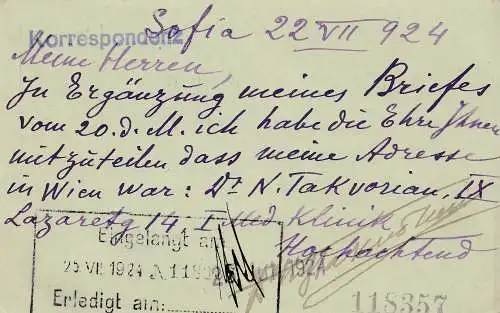 Sofia 22 VII 924
Korrespondenz
Meine Herren,
In Ergänzung meines Briefes
vom 20.d.M. ich habe die Ehre Ihnen
mitzuteilen dass meine Adresse
in Wien war: Dr N. Takvorian, IX
Lazaretg 14 I med. Klinik
Hochachtend
Eingelangt am
25 VII 1924
Erledigt am:
118357